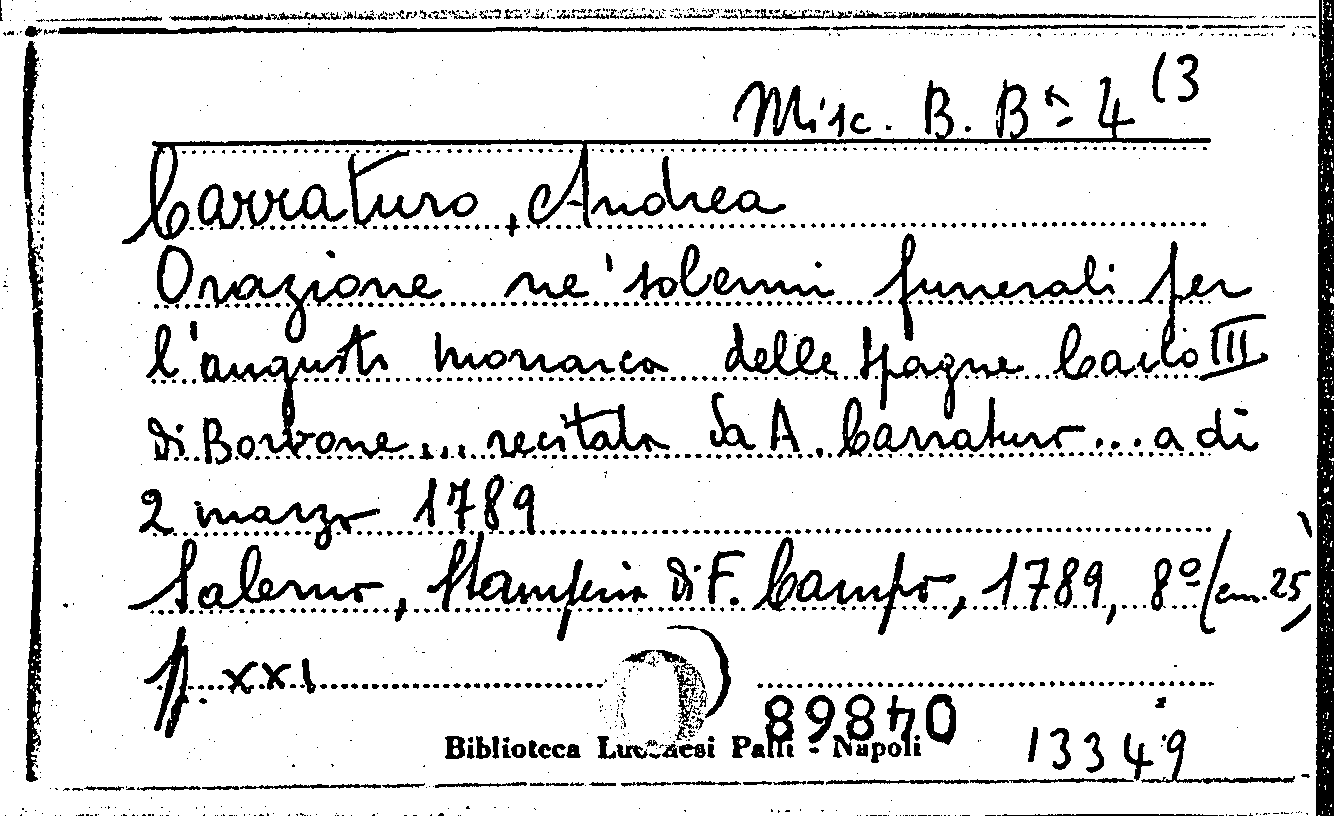 Misc. B. Bª 4 (3
Carraturo, Andrea
Orazione ne' solenni funerali per
l'augusto monarca delle Spagne Carlo III
di Borbone... recitata da A. Carraturo... a di
2 marzo 1789
Salerno, Stamperia di F. Campo, 1789, 8º (cm. 25)
p. XXI
Biblioteca Lucchesi Palli - Napoli
04868
13349